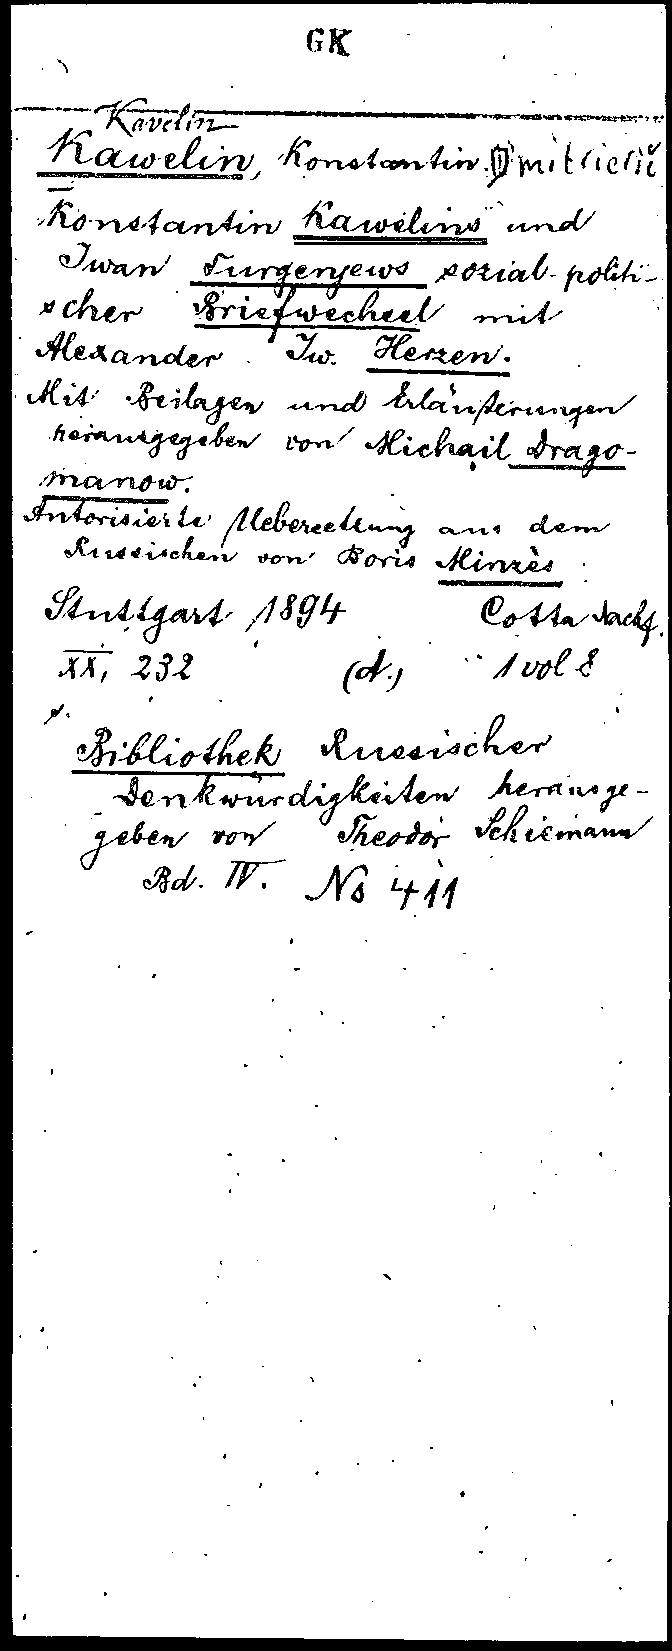 GK
Kavelin
Kawelin, Konstantin Dmitrierič
Konstantin Kawelins und
Iwan Turgenjews sozial-politi-
scher Briefwechsel mit
Alexander Iw. Herzen.
Mit Beilagen und Erläuterungen
herausgegeben von Michail Drago-
manow.
Autorisierte Uebersetzung aus dem
Russischen von Boris Minzès
Stuttgart 1894 Cotta Nachf.
XX, 232 (d.) 1 vol 8
Bibliothek Russischer
Denkwürdigkeiten herausge-
geben von Theodor Schiemann
Bd. IV. No 411